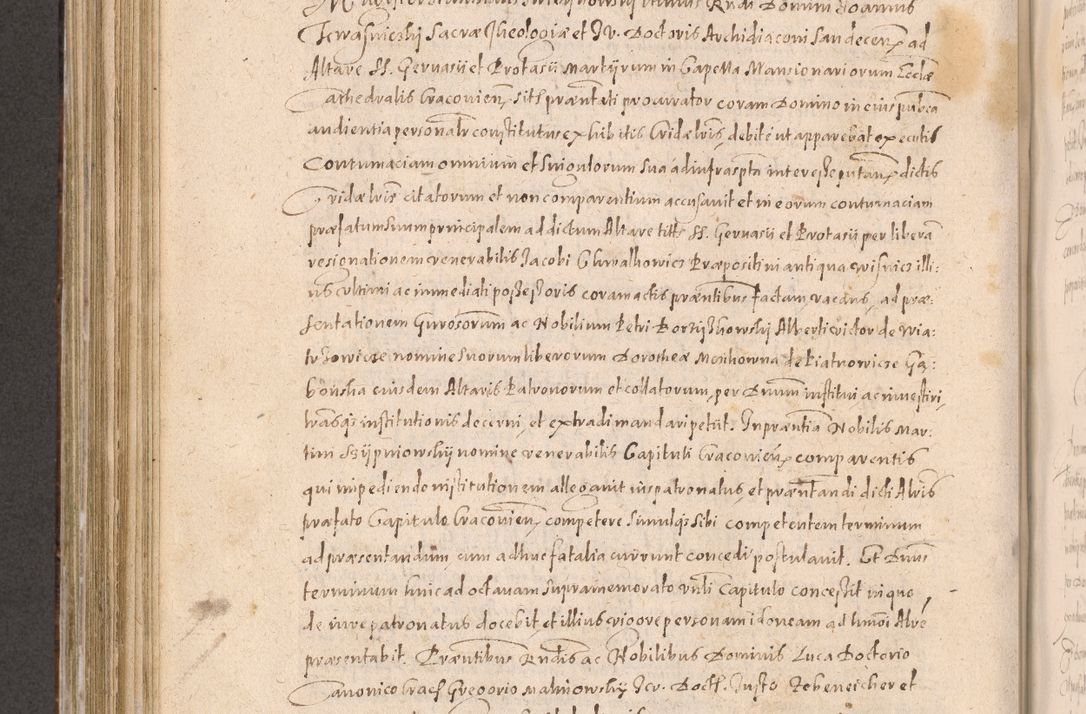 Iwasniczkij Sacræ Theologiæ et Iv. Doctoris Archidiaconi Sandecen, ad
Altare SS. Gervasii et Protasii Martijrum in Capella Mansionariorum Ecclæ
Cathedralis Cracovien, sits præntati procurator coram Domino in eius publca
audientia personalr constitutus exhibitis Cridælris, debite ut apparebat executis
Contumaciam omnium et Singulorum sua ad infrascpta interesse putan, dictis
Cridælris citatorum et non comparentium accusavit et in eorum contumaciam
præfatum suum principalem ad dictum Altare titt SS. Gervasii et Protasii per liberā
resignationem venerabilis Jacobi Chwalkowicz Præpositi in antiqua Wisnicz illi:
us ultimi ac immediati possessoris coram actis præntibus factam, vacans, ad præ:
sentationem Gnrosorum ac Nobilium Petri Alberti victor de Wia:
nomine suorum liberorum Dorotheæ de Piatnowicze
eiusdem Altaris Patronorum et collatorum, per Dnum institui ac investiri,
lrasqs institutionis decerni, et extradi mandari petiit. In præntia Nobilis Mar:
tini Szijpniowskij nomine venerabilis Capituli Cracovien, comparentis
qui impediendo institutionem allegavit ius patronatus, et præntandi dicti Alris
præfato Capitulo Cracovien, competere simulqs sibi competentem terminum
ad præsentandum cum adhuc fatalia currunt concedi postulavit. Et Dnus
terminum hinc ad octavam supramemorato vnli Capitulo concessit in quo
de iure patronatus docebit, et illius vigore personam idoneam ad hmoi Alre
præsentabit. Præntibus Rndis ac Nobilibus Dominis Luca Doctorio
Canonico Crac. Gregorio Malinowskij Icv. Doct. Justo Rebeneicher et